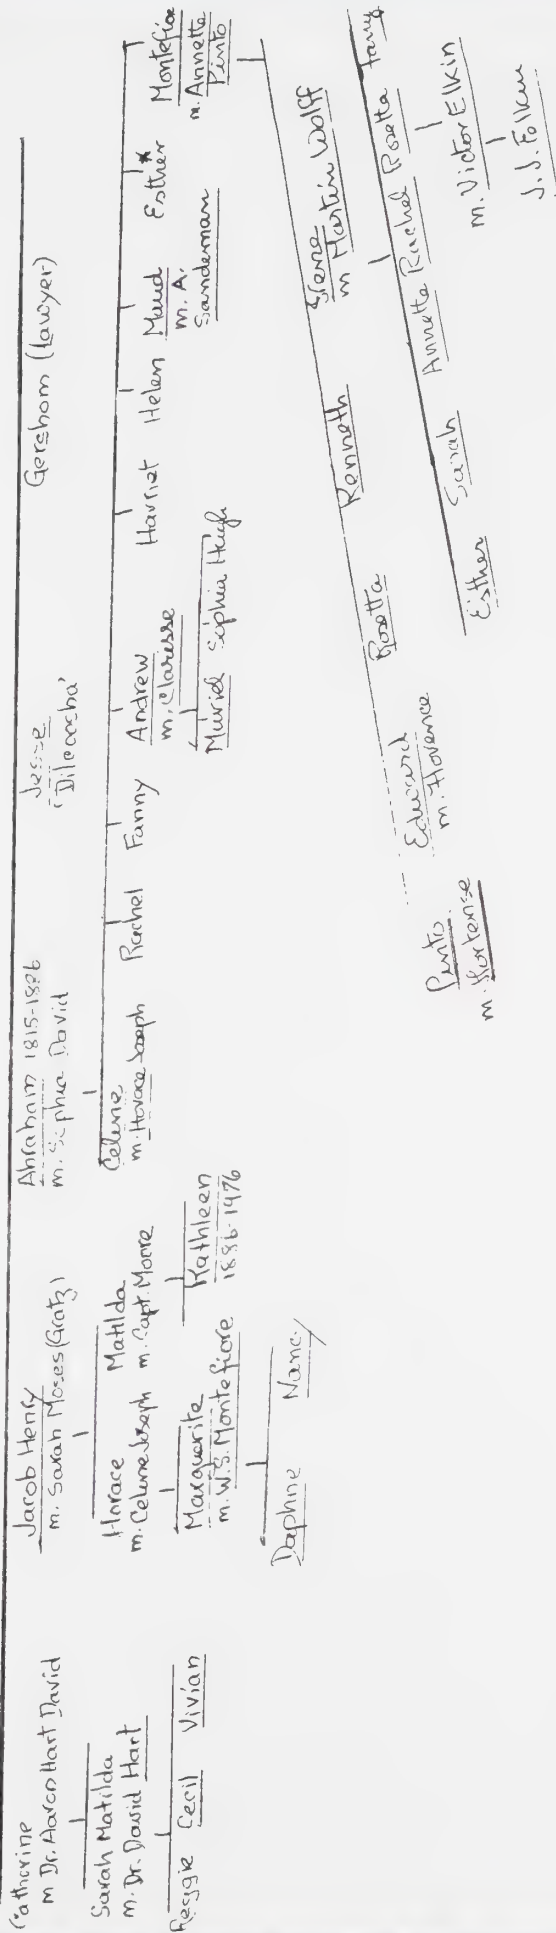 Catherine
m Dr. Aaron Hart David
Sarah Matilda
m. Dr. David Hart
Reggie Cecil Vivian
Jacob Henry
m. Sarah Moses (Gratz)
Horace
m. Celine Joseph
Matilda
m. Capt. Moore
Marguerite
m. W.S. Montefiore
Kathleen
1886-1976
Daphne Nancy
Abraham 1815-1886
m. Sophia David
Jesse
'Dilcoosha'
Gershom (Lawyer)
Celine
m. Horace Joseph
Rachel
Fanny
Andrew
m. Clarisse
Muriel Sophia Hugh
Harriet
Helen
Maud
m. A.
Sandeman
Esther*
Montefiore
m. Annette
Pinto
Pinto
m. Hortense
Edward
m. Florence
Rosetta
Kenneth
m Martin Wolff
Esther Sarah Annette Rachel Rosetta Fanny
m. Victor Elkin
J.J.